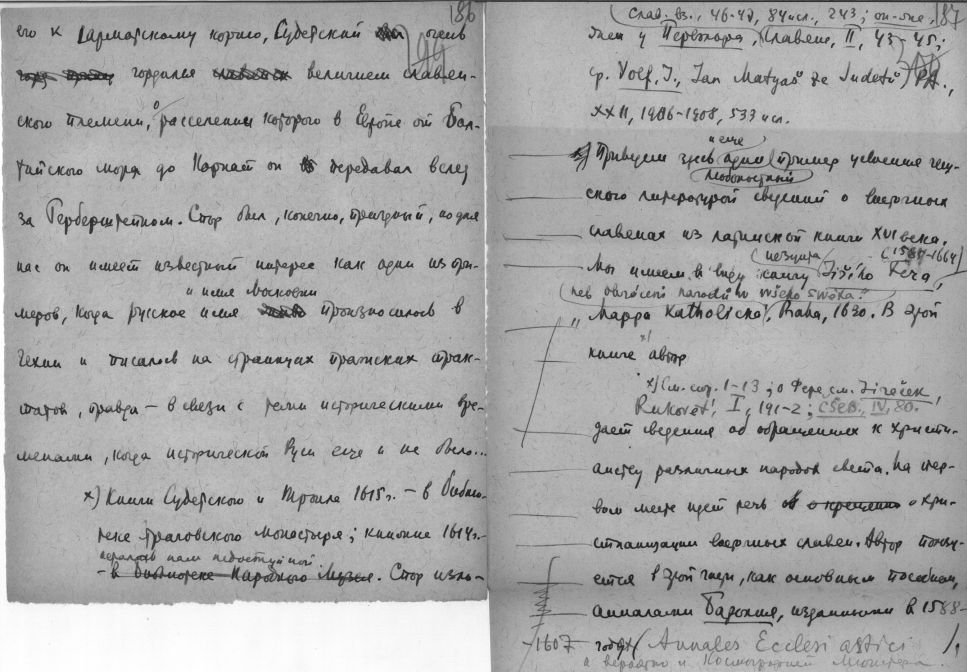 186
его к сарматскому корню, Судетский очень
гордился величием славян-
ского племени, расселении которого в Европе от Бал-
тийского моря до Карпат он передавал вслед
за Герберштейном. Спор был, конечно, праздный, но для
нас он имеет известный интерес как один из при-
и имя Московии
меров, когда русское имя произносилось в
Чехии и писалось на страницах пражских трак-
татов, правда – в связи с теми историческими вре-
менами, когда исторической Руси еще и не было...
х) Книги Судетского и Троила 1615 г. – в библио-
теке Страговского монастыря; книжка 1614 г.
осталась нам недоступной.
– в библиотеке Народного Музея. Спор изло-
187
Слав. вз., 46-47, 84 исл., 243;
Перволфа, Славяне, II, 43-45;
ср. Volf, J., Jan Matyáš ze Sudetů,
XXII, 1906-1908, 533 исл.
и еще
Приведем здесь один пример усвоения чеш-
любопытный
ской литературой сведений о восточных
славянах из латинской книги XVI века.
иезуита (1587-1664)
Мы имеем в виду книгу Jiřího Fera,
neb obrácení národů wšeho swěta.
"Mappa Katholická, Praha, 1630. В этой
книге х) автор
х) См. стр. 1-13; о Фере см. Jireček,
Rukovět', I, 191-2; ČSEB., IV, 80.
дает сведения об обращениях к христи-
анству различных народов света. На пер-
вом месте идет речь о хри-
стианизации восточных славян. Автор пользу-
ется в этой части, как основным пособием,
анналами Барония, изданными в 1588-
-1607 годах (Annales Ecclesiastici
а вероятно и Космографией Мюнстера